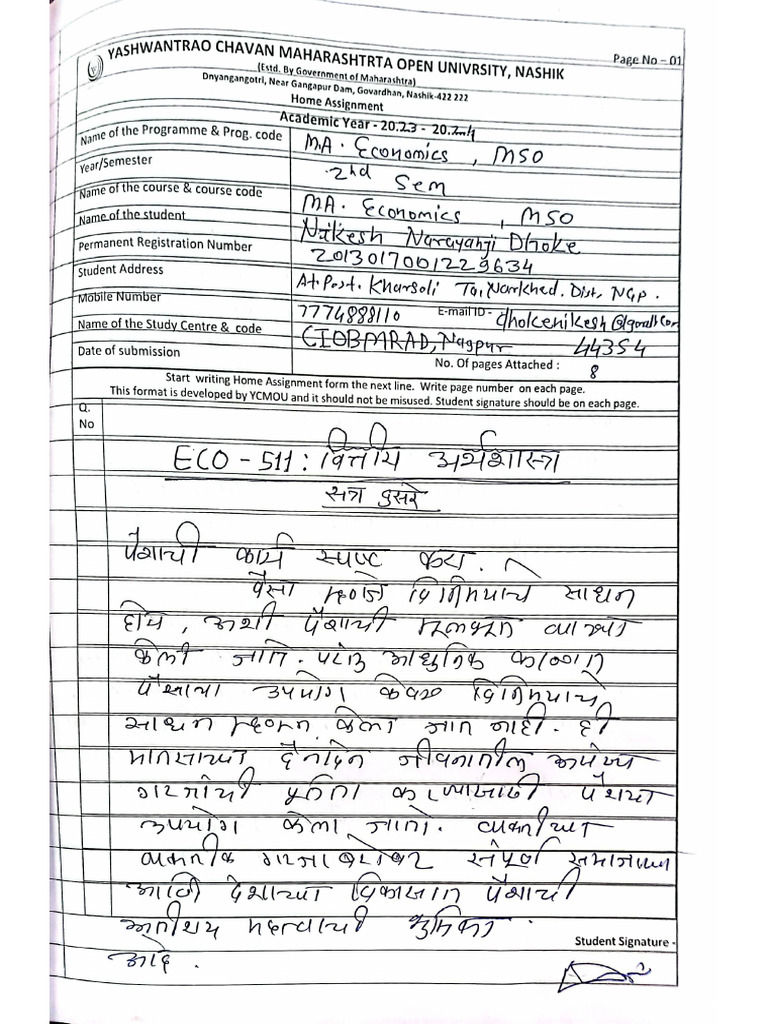 YASHWANTRAO CHAVAN MAHARASHTRTA OPEN UNIVRSITY, NASHIK
Page No – 01
(Estd. By Government of Maharashtra)
Dnyangangotri, Near Gangapur Dam, Govardhan, Nashik-422 222
Home Assignment
Academic Year - 2023 - 2024
Name of the Programme & Prog. code M.A. Economics, MSO
Year/Semester 2nd Sem
Name of the course & course code MA. Economics, MSO
Name of the student Nikesh Narayanji Dhoke
Permanent Registration Number 2013017001229634
Student Address At. Post. Kharsoli Ta. Narkhed. Dist. NGP.
Mobile Number 7774888110 E-mail ID - dhokenikesh@gmail.com
Name of the Study Centre & code Nagpur 44354
Date of submission
No. Of pages Attached : 8
Start writing Home Assignment form the next line. Write page number on each page.
This format is developed by YCMOU and it should not be misused. Student signature should be on each page.
Q.
No
ECO - 511 : वित्तीय अर्थशास्त्र
सत्र दुसरे
पैशाची कार्य स्पष्ट करा.
पैसा म्हणजे विनिमयाचे साधन
होय, अशी पैशाची व्याख्या
केली जाते. परंतु आधुनिक काळात
पैशाचा उपयोग केवळ विनिमयाचे
साधन म्हणून केला जात नाही. ही
दैनंदिन जीवनातील
गरजांची पूर्तता करण्यासाठी पैशाचा
उपयोग केला जातो.
संपूर्ण
आणि देशाच्या विकासात पैशाची
अतिशय महत्वाची भुमिका
आहे.
Student Signature -